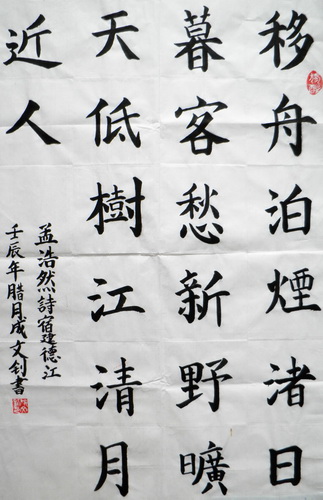 移舟泊煙渚日
暮客愁新野曠
天低樹江清月
近人
孟浩然詩宿建德江
壬辰年臘月成文釗書